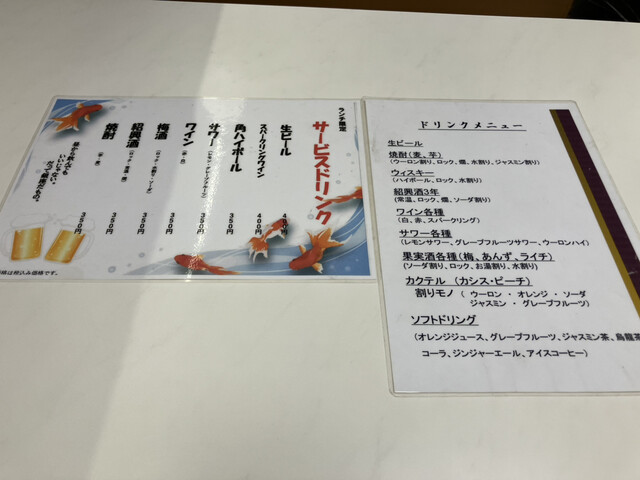 ランチ限定
サービスドリンク
生ビール 400円
スパークリングワイン 400円
角ハイボール 350円
サワー 350円
ワイン 350円
梅酒 350円
紹興酒 350円
焼酎 350円
昼から飲んでも
いいじゃない、
だって
税込み価格です。
ドリンクメニュー
生ビール
焼酎(麦、芋)
(ウーロン割り、ロック、燗、水割り、ジャスミン割り)
ウィスキー
(ハイボール、ロック、水割り)
紹興酒3年
(常温、ロック、燗、ソーダ割り)
ワイン各種
(白、赤、スパークリング)
サワー各種
(レモンサワー、グレープフルーツサワー、ウーロンハイ)
果実酒各種(梅、あんず、ライチ)
(ソーダ割り、ロック、お湯割り、水割り)
カクテル (カシス・ピーチ)
割りモノ ( ウーロン ・ オレンジ ・ ソーダ
ジャスミン ・ グレープフルーツ)
ソフトドリング
(オレンジジュース、グレープフルーツ、ジャスミン茶、烏龍茶
コーラ、ジンジャーエール、アイスコーヒー)